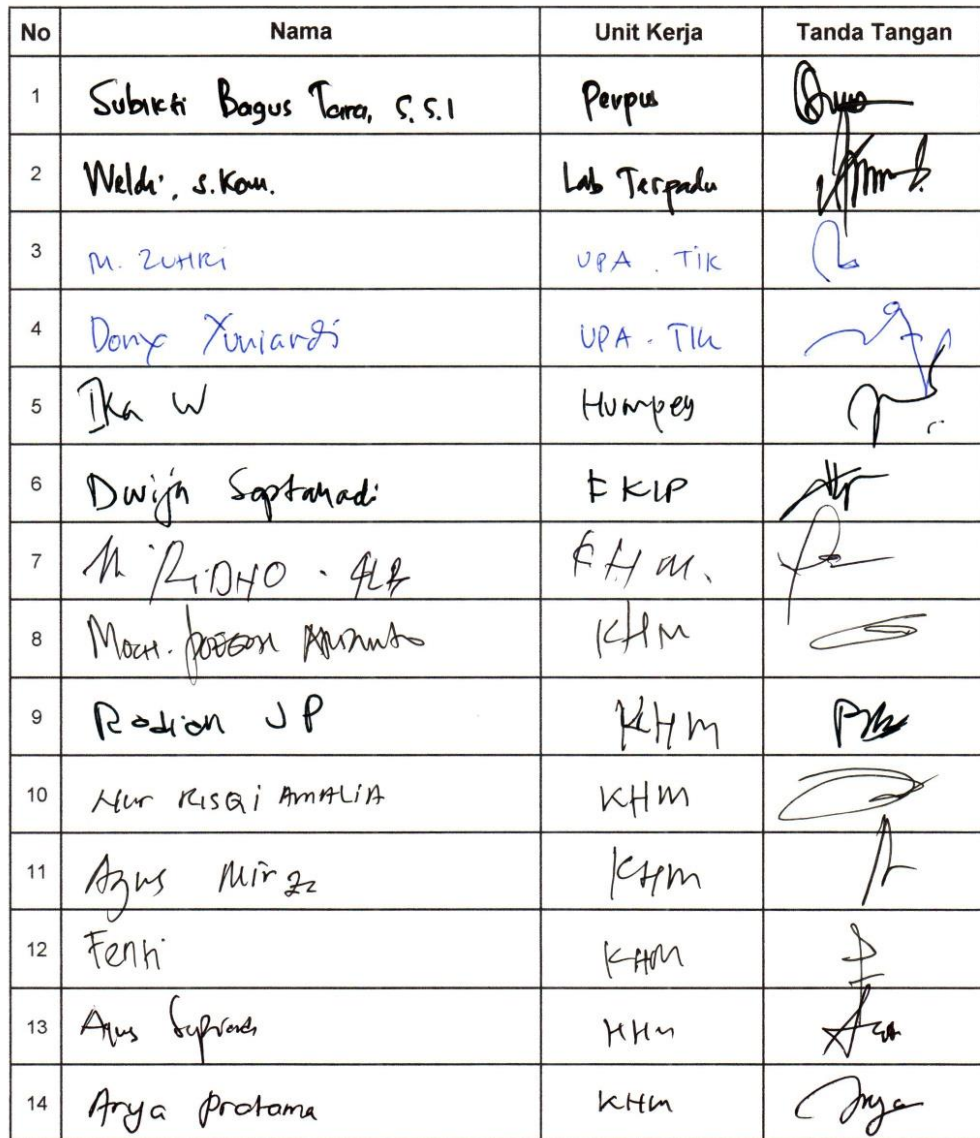 No Nama Unit Kerja Tanda Tangan
1 Subikti Bagus Tama, S.S.I Perpus
2 Weldi, S.Kom. Lab Terpadu
3 M. ZUHRI UPA. TIK
4 Dony Yuniardi UPA. TIK
5 Ika W Humpeg
6 Dwijo Saptahadi FKIP
7 M RIDHO
8 Moch. KHM
9 Radian JP KHM
10 Nur RISQI AMALIA KHM
11 Agus Mirza KHM
12 Fenti KHM
13 Agus Supriadi
14 Arya Pratama KHM Arya